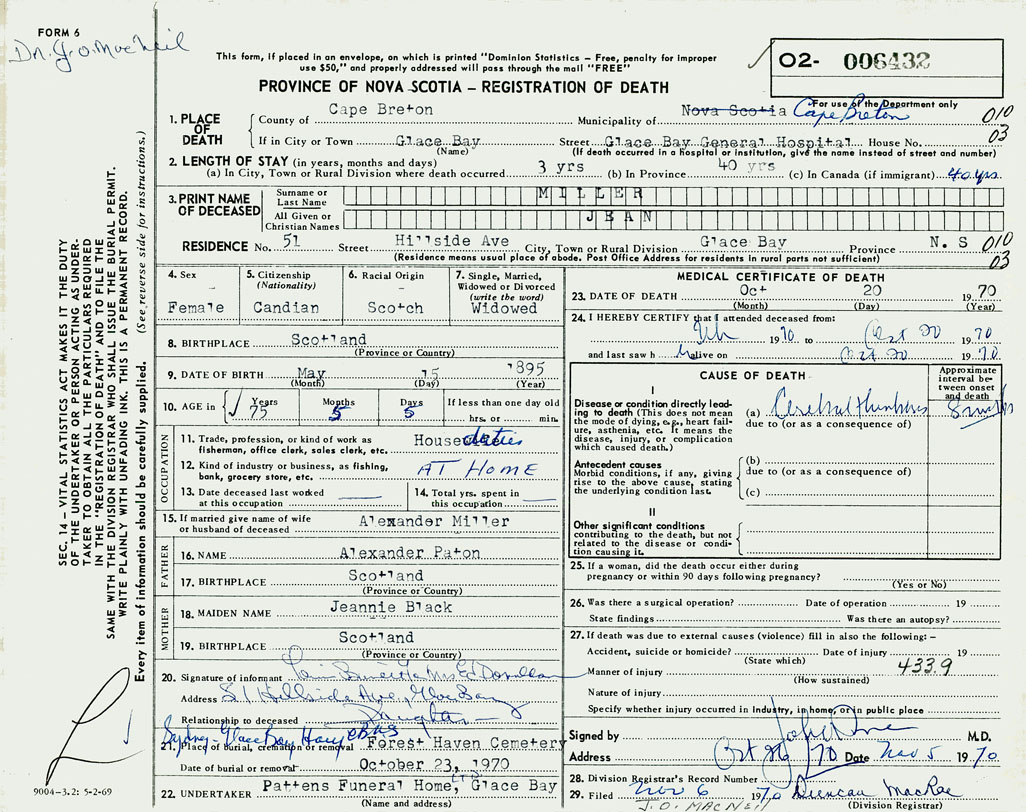 FORM 6
Dr. J. O. MacNeil
This form, if placed in an envelope, on which is printed "Dominion Statistics – Free, penalty for improper
use $50," and properly addressed will pass through the mail "FREE"
02- 006432
For use of the Department only
PROVINCE OF NOVA SCOTIA – REGISTRATION OF DEATH
1. PLACE OF DEATH
County of Cape Breton Municipality of Nova Scotia Cape Breton 010
If in City or Town Glace Bay Street Glace Bay General Hospital House No. 03
(Name) (If death occurred in a hospital or institution, give the name instead of street and number)
2. LENGTH OF STAY (in years, months and days)
(a) In City, Town or Rural Division where death occurred 3 yrs (b) In Province 40 yrs (c) In Canada (if immigrant) 40 yrs.
3. PRINT NAME OF DECEASED
Surname or Last Name MILLER
All Given or Christian Names JEAN
RESIDENCE No. 51 Street Hillside Ave City, Town or Rural Division Glace Bay Province N. S 010
(Residence means usual place of abode. Post Office Address for residents in rural parts not sufficient) 03
4. Sex
Female
5. Citizenship
(Nationality)
Candian
6. Racial Origin
Scotch
7. Single, Married, Widowed or Divorced
(write the word)
Widowed
8. BIRTHPLACE Scotland
(Province or Country)
9. DATE OF BIRTH May 15 1895
(Month) (Day) (Year)
10. AGE in Years Months Days If less than one day old
75 5 5 hrs. or min.
OCCUPATION
11. Trade, profession, or kind of work as House duties
fisherman, office clerk, sales clerk, etc.
12. Kind of industry or business, as fishing, AT HOME
bank, grocery store, etc.
13. Date deceased last worked at this occupation
14. Total yrs. spent in this occupation
15. If married give name of wife or husband of deceased Alexander Miller
FATHER
16. NAME Alexander Paton
17. BIRTHPLACE Scotland
(Province or Country)
MOTHER
18. MAIDEN NAME Jeannie Black
19. BIRTHPLACE Scotland
(Province or Country)
20. Signature of informant
Address 51 Hillside Ave, Glace Bay
Relationship to deceased Daughter
Sydney-Glace Bay Hwy
21. Place of burial, cremation or removal Forest Haven Cemetery
Date of burial or removal October 23, 1970
22. UNDERTAKER Pattens Funeral Home, LTD Glace Bay
(Name and address)
MEDICAL CERTIFICATE OF DEATH
23. DATE OF DEATH Oct 20 1970
(Month) (Day) (Year)
24. I HEREBY CERTIFY that I attended deceased from:
1970 to Oct 20 1970
and last saw h alive on Oct 20 1970
CAUSE OF DEATH
Approximate interval between onset and death
I
Disease or condition directly leading to death (This does not mean the mode of dying, e.g., heart failure, asthenia, etc. It means the disease, injury, or complication which caused death.)
(a) Cerebral
due to (or as a consequence of)
Antecedent causes
Morbid conditions, if any, giving rise to the above cause, stating the underlying condition last.
(b)
due to (or as a consequence of)
(c)
II
Other significant conditions
contributing to the death, but not related to the disease or condition causing it.
25. If a woman, did the death occur either during
pregnancy or within 90 days following pregnancy?
(Yes or No)
26. Was there a surgical operation? Date of operation 19
State findings Was there an autopsy?
27. If death was due to external causes (violence) fill in also the following: –
Accident, suicide or homicide? Date of injury 19
(State which)
Manner of injury 433.9
(How sustained)
Nature of injury
Specify whether injury occurred in Industry, in home, or in public place
Signed by M.D.
Address Oct 26/70 Date Nov 5 1970
28. Division Registrar's Record Number
29. Filed Nov 6 1970 Duncan MacRae
J. O. MACNEIL (Division Registrar)
SEC. 14 – VITAL STATISTICS ACT MAKES IT THE DUTY
OF THE UNDERTAKER OR PERSON ACTING AS UNDER-
TAKER TO OBTAIN ALL THE PARTICULARS REQUIRED
IN THE "REGISTRATION OF DEATH" AND TO FILE THE
SAME WITH THE DIVISION REGISTRAR WHO SHALL ISSUE THE BURIAL PERMIT.
WRITE PLAINLY WITH UNFADING INK. THIS IS A PERMANENT RECORD.
Every item of information should be carefully supplied. (See reverse side for instructions.)
9004-3.2: 5-2-69